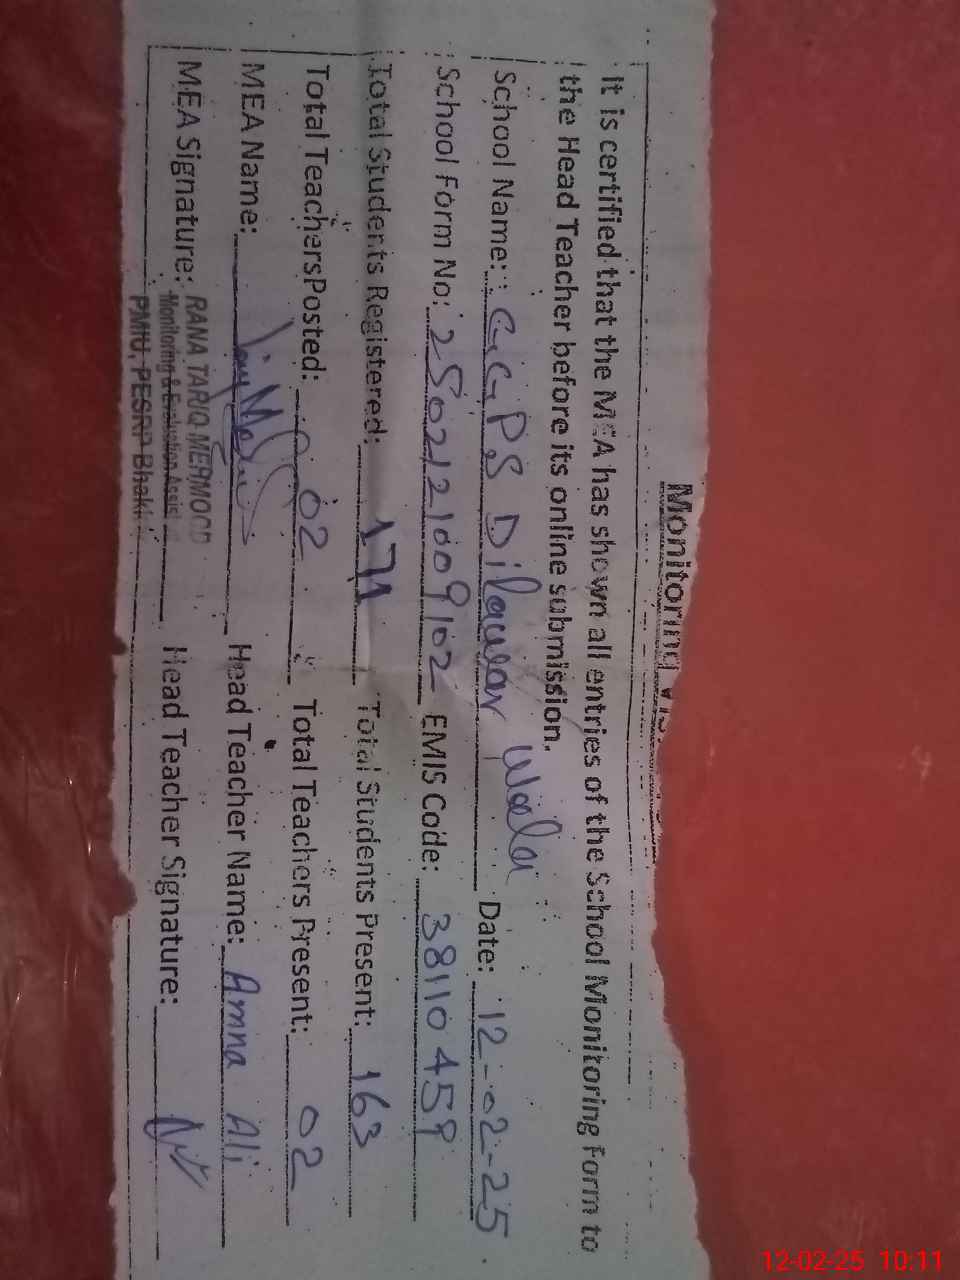 Monitoring
It is certified that the MEA has shown all entries of the School Monitoring Form to
the Head Teacher before its online submission.
School Name: GGPS Dilawar Wala Date: 12-02-25
School Form No: 2502121009102 EMIS Code: 38110459
Total Students Registered: 171 Total Students Present: 163
Total Teachers Posted: 02 Total Teachers Present: 02
MEA Name: Head Teacher Name: Amna Ali
MEA Signature: RANA TARIQ MEHMOOD Head Teacher Signature:
Monitoring & Evaluation Assist
PMIU, PESRP Bhak
12-02-25 10:11